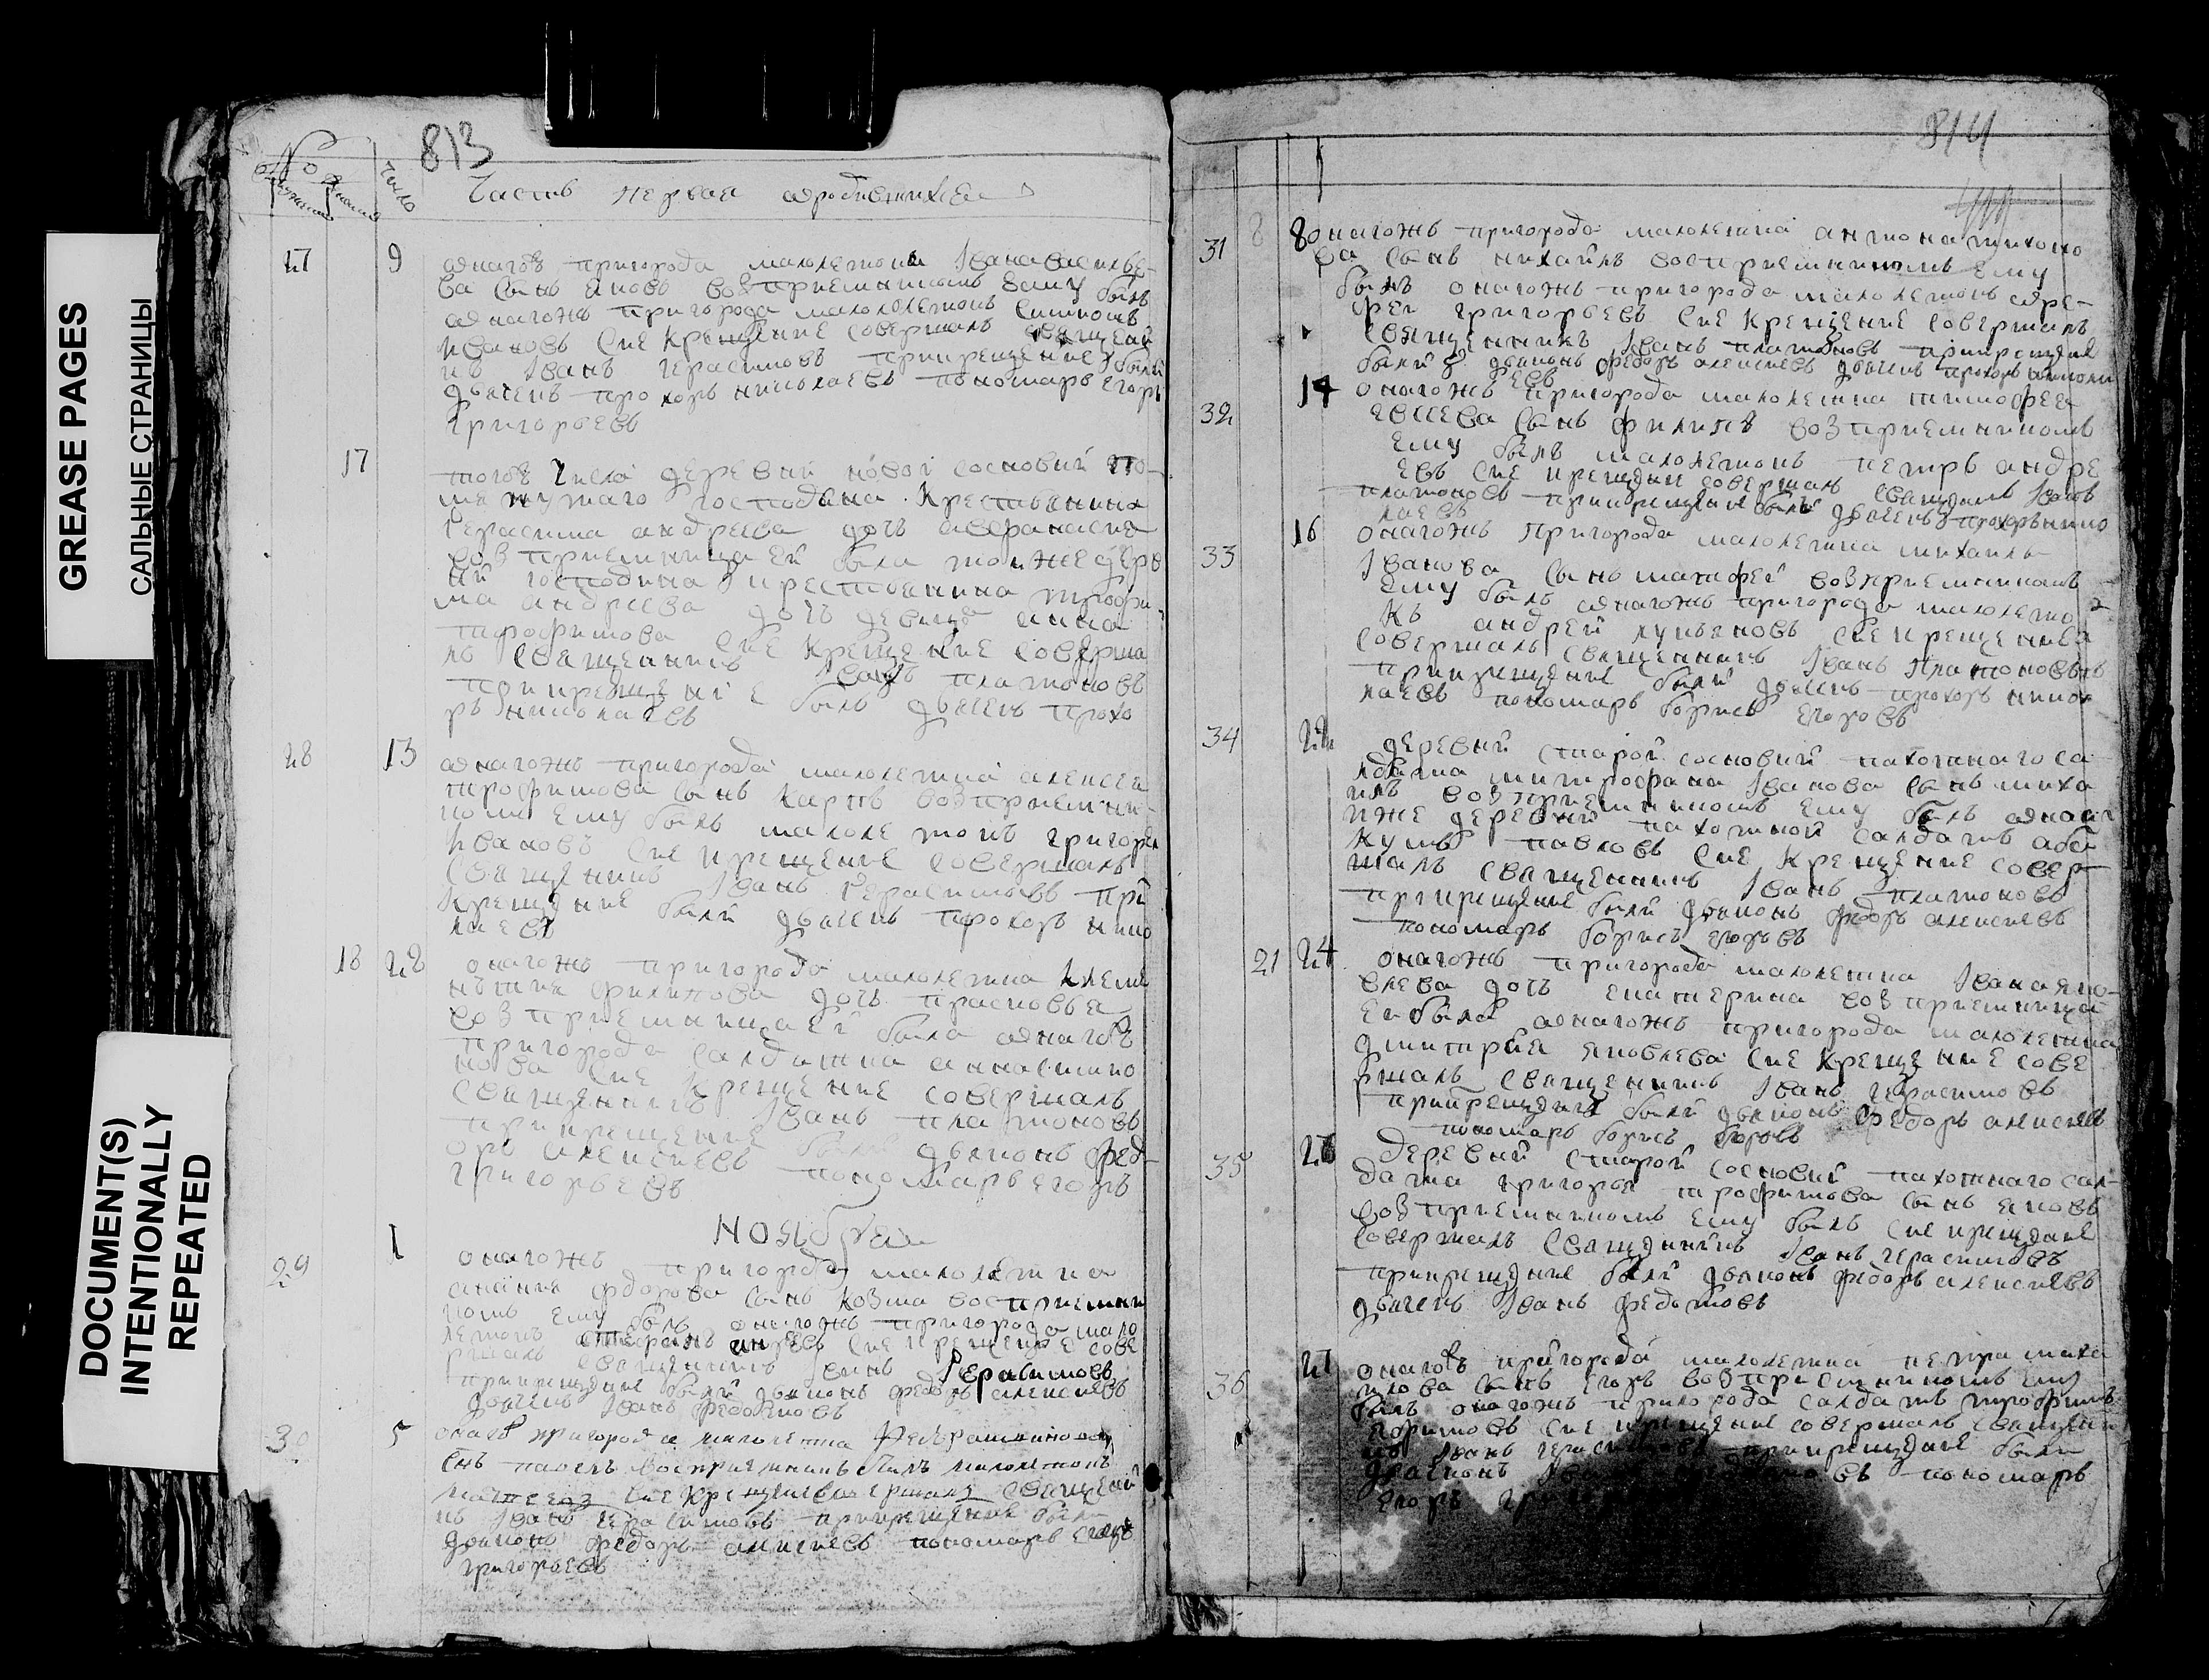 GREASE PAGES
САЛЬНЫЕ СТРАНИЦЫ
DOCUMENT(S)
INTENTIONALLY
REPEATED
813
№
число
Часть первая о родившихся
27 9 онагожъ пригорода малолетка Ивана василье-
ва сынъ яковъ возприемникомъ ему былъ
онагожъ пригорода малолетокъ симионъ
ивановъ сие крещение совершалъ священни
къ Иванъ герасимовъ прикрещение были
дьячекъ прохоръ николаевъ пономарь егоръ
григорьевъ
17 тогоъ числа деревни новой сосновки по-
мянутаго господина крестьянина
герасима андрева дочь афранасия
возприемница ей была тоиже дере
ни господина крестьянина трофи
ма андреева дочь девица анна
трофимова сие крещение соверша
лъ священникъ Иванъ платоновъ
прикрещение былъ дьячекъ прохо
ръ николаевъ
28 13 онагожъ пригорода малолетка алексея
трофимова сынъ карпъ возприемни-
комъ ему былъ малолетокъ григорей
ивановъ сие крещение совершалъ
священникъ Иванъ герасимовъ при
крещение были дьячекъ прохоръ нико
лаевъ
18 22 онагожъ пригорода малолетка клеме
нътия филипова дочь прасковья
возприемница ей была онагоъ
пригорода салдатка анна
нова сие крещение совершалъ
священникъ Иванъ платоновъ
прикрещение были дьяконъ фед-
оръ алексиевъ пономарь егоръ
григорьевъ
ноября
29 1 онагожъ пригорода малолетка
фдорова сынъ козма восприемни
комъ ему былъ онагожъ пригорода мало
летокъ сие крещение сове
ршалъ священникъ Иванъ герасимовъ
прикрещение были дьяконъ федоръ алексиевъ
дьячекъ Иванъ федотовъ
30 5 онагоъ пригорода малолетка
снъ павелъ восприемникъ былъ малолетокъ
сие крещение совершалъ священи
къ Иванъ герасимовъ прикрещение были
дьяконъ федоръ алексиевъ пономарь егоръ
григорьевъ
814
31 8 онагожъ пригорода малолетка антона тихоно
ва сынъ михайлъ восприемникомъ ему
былъ онагожъ пригорода малолетокъ ефре-
григорьевъ сие крещение совершалъ
священникъ Иванъ платоновъ прикрещение
были дьяконъ федоръ алексиевъ дьячекъ прохоръ николаи
евъ
32 14 онагожъ пригорода малолетка тимофея
сынъ филипъ возприемникомъ
ему былъ малолетокъ петръ андре
евъ сие крещение совершалъ священикъ Иванъ
платоновъ прикрещение былъ дьячекъ прохоръ нико
лаевъ
33 16 онагожъ пригорода малолетка михаила
Иванова сынъ матфей возприемникомъ
ему былъ онагожъ пригорода малолето
къ андрей лукьяновъ сие крещение
совершалъ священникъ Иванъ платоновъ
прикрещение были дьячекъ прохоръ нико
лаевъ пономарь борисъ егоровъ
34 22 деревни старой сосновки пахотнаго са-
лдата митрофана Иванова сынъ миха
илъ возприемникомъ ему былъ
иже деревни пахотной салдатъ аба
кумъ павловъ сие крещение совер-
шалъ священникъ Иванъ платоновъ
прикрещение были дьяконъ федоръ алексиевъ
пономарь борисъ егоровъ
21 24 онагожъ пригорода малолетка Ивана яко-
влева дочь екатерина возприемница
ей была онагожъ пригорода малолетка
дмитрия яковлева сие крещение сове
ршалъ священникъ Иванъ герасимовъ
прикрещение были дьяконъ федоръ алексиевъ
пономарь борисъ егоровъ
35 26 деревни старой сосновки пахотнаго сал-
дата григорья трофимова сынъ яковъ
возприемникомъ ему былъ сие крещение
совершалъ священникъ Иванъ герасимовъ
прикрещение были дьяконъ федоръ алексиевъ
дьячекъ Иванъ федотовъ
36 27 онагоъ пригорода малолетка петра миха
илова сынъ егоръ возприемникомъ ему
былъ онагожъ пригорода салдатъ трофимъ
сие крещение совершалъ священи
къ Иванъ герасимовъ прикрещение были
пономарь
егоръ